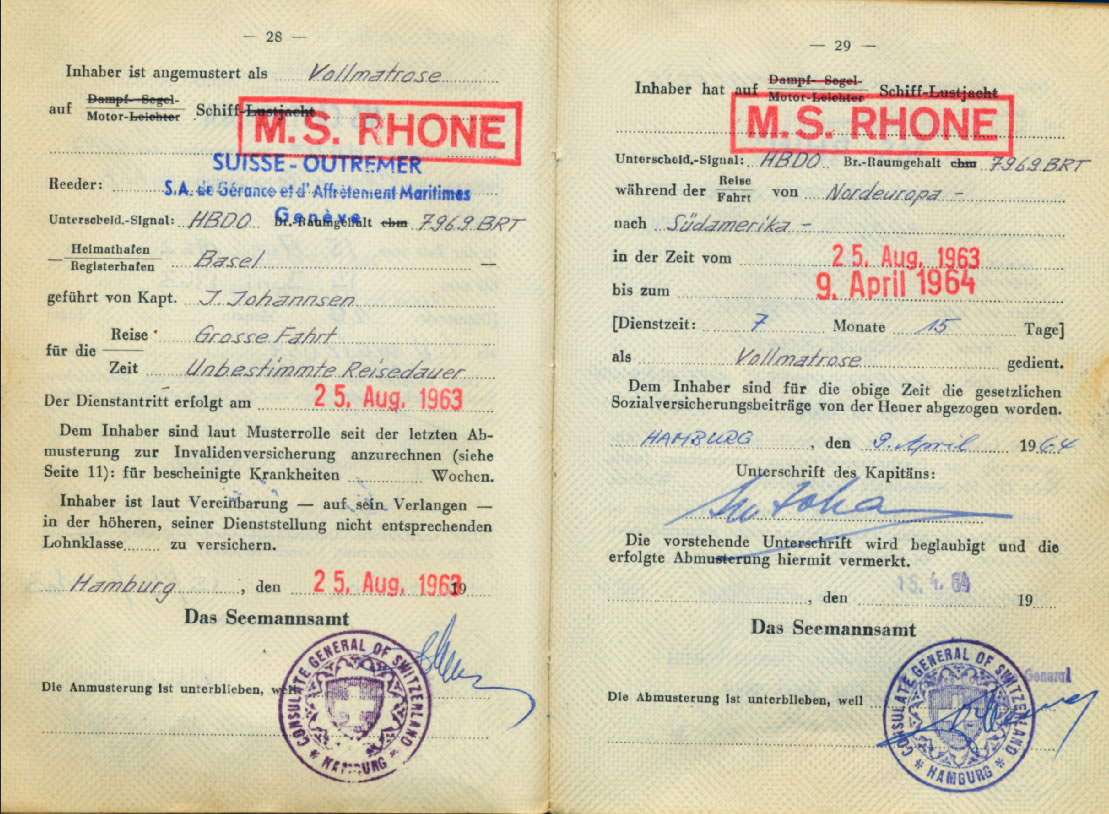 — 28 —
Inhaber ist angemustert als Vollmatrose
auf Dampf- Segel-
Motor-Leichter Schiff-Lustjacht
M.S. RHONE
SUISSE-OUTREMER
Reeder: S.A. de Gérance et d'Affrètement Maritimes
Genève
Unterscheid.-Signal: HBDO Br.-Raumgehalt cbm 7969.BRT
— Heimathafen
Registerhafen Basel —
geführt von Kapt. J Johannsen
für die Reise Grosse Fahrt
Zeit Unbestimmte Reisedauer
Der Dienstantritt erfolgt am 25. Aug. 1963
Dem Inhaber sind laut Musterrolle seit der letzten Ab-
musterung zur Invalidenversicherung anzurechnen (siehe
Seite 11): für bescheinigte Krankheiten Wochen.
Inhaber ist laut Vereinbarung — auf sein Verlangen —
in der höheren, seiner Dienststellung nicht entsprechenden
Lohnklasse zu versichern.
Hamburg, den 25. Aug. 1963 19
Das Seemannsamt
Die Anmusterung ist unterblieben, weil
CONSULATE GENERAL OF SWITZERLAND
* HAMBURG *
— 29 —
Inhaber hat auf Dampf- Segel-
Motor-Leichter Schiff-Lustjacht
M.S. RHONE
Unterscheid.-Signal: HBDO Br.-Raumgehalt cbm 7969.BRT
während der Reise
Fahrt von Nordeuropa -
nach Südamerika -
in der Zeit vom 25. Aug. 1963
bis zum 9. April 1964
[Dienstzeit: 7 Monate 15 Tage]
als Vollmatrose gedient.
Dem Inhaber sind für die obige Zeit die gesetzlichen
Sozialversicherungsbeiträge von der Heuer abgezogen worden.
HAMBURG, den 9. April 1964
Unterschrift des Kapitäns:
Die vorstehende Unterschrift wird beglaubigt und die
erfolgte Abmusterung hiermit vermerkt.
, den 15. 4. 64 19
Das Seemannsamt
General
Die Abmusterung ist unterblieben, weil
CONSULATE GENERAL OF SWITZERLAND
* HAMBURG *